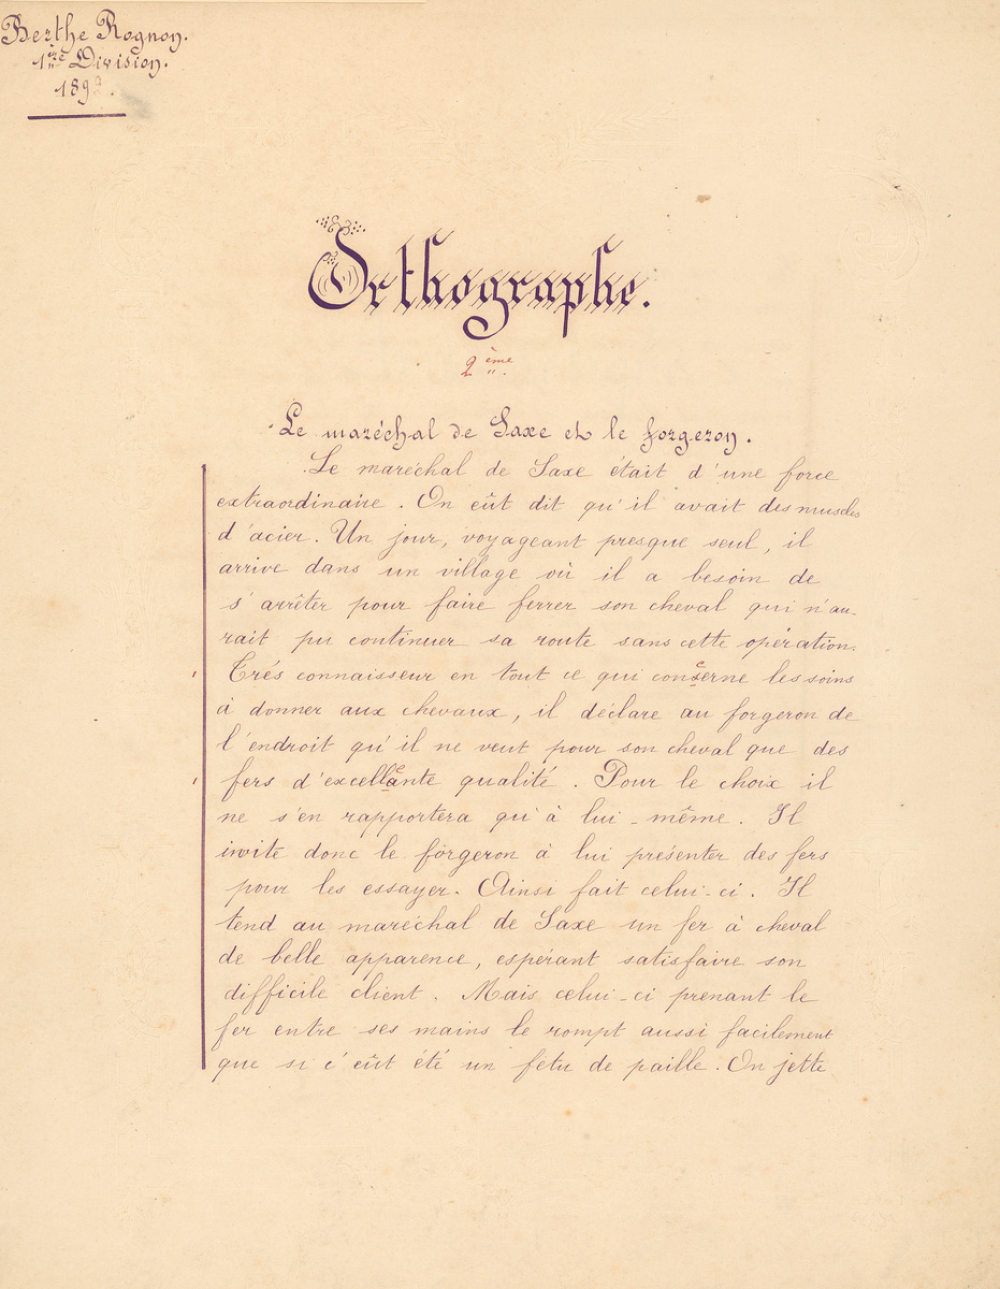 Berthe Rognon.
1ère Division.
189
Orthographe.
2ème
Le maréchal de Saxe et le forgeron.
Le maréchal de Saxe était d'une force
extraordinaire. On eût dit qu'il avait des muscles
d'acier. Un jour, voyageant presque seul, il
arrive dans un village où il a besoin de
s'arrêter pour faire ferrer son cheval qui n'au-
rait pu continuer sa route sans cette opération.
Très connaisseur en tout ce qui conserne les soins
à donner aux chevaux, il déclare au forgeron de
l'endroit qu'il ne veut pour son cheval que des
fers d'excellante qualité. Pour le choix il
ne s'en rapportera qu'à lui-même. Il
invite donc le forgeron à lui présenter des fers
pour les essayer. Ainsi fait celui-ci. Il
tend au maréchal de Saxe un fer à cheval
de belle apparence, espérant satisfaire son
difficile client. Mais celui-ci prenant le
fer entre ses mains le rompt aussi facilement
que si c'eût été un fetu de paille. On jette